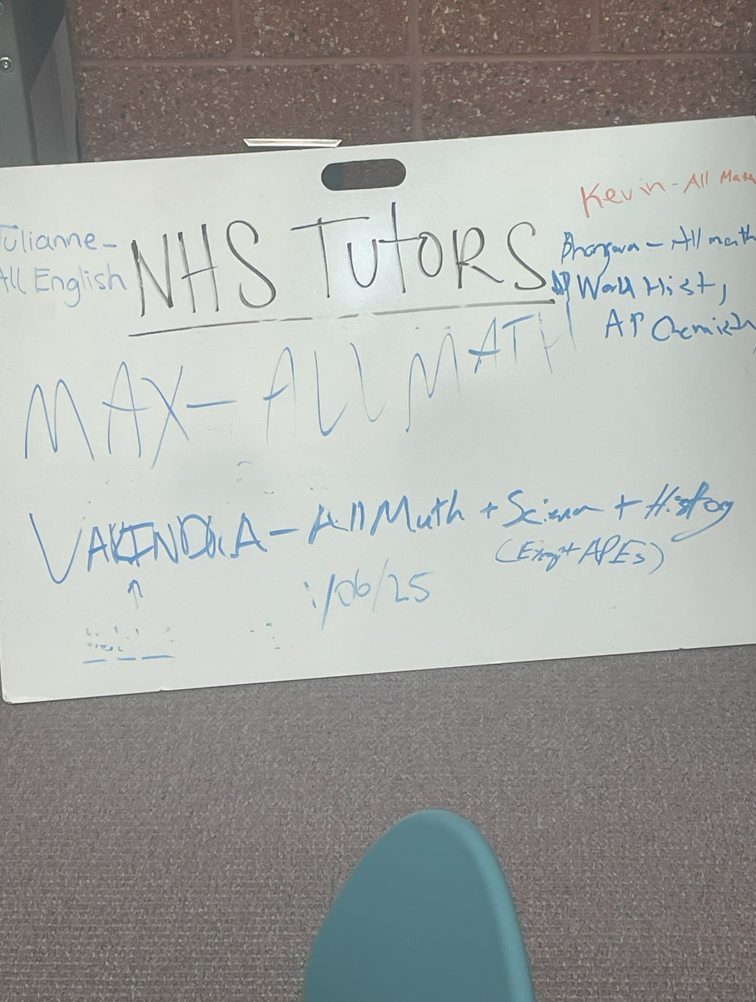 NHS TUTORS
Julianne -
All English
Kevin - All Math
Bhargava - All math
AP World Hist,
AP Chemistry
MAX - ALL MATH
VAKINDRA - All Math + Science + History
(Except APES)
/06/25